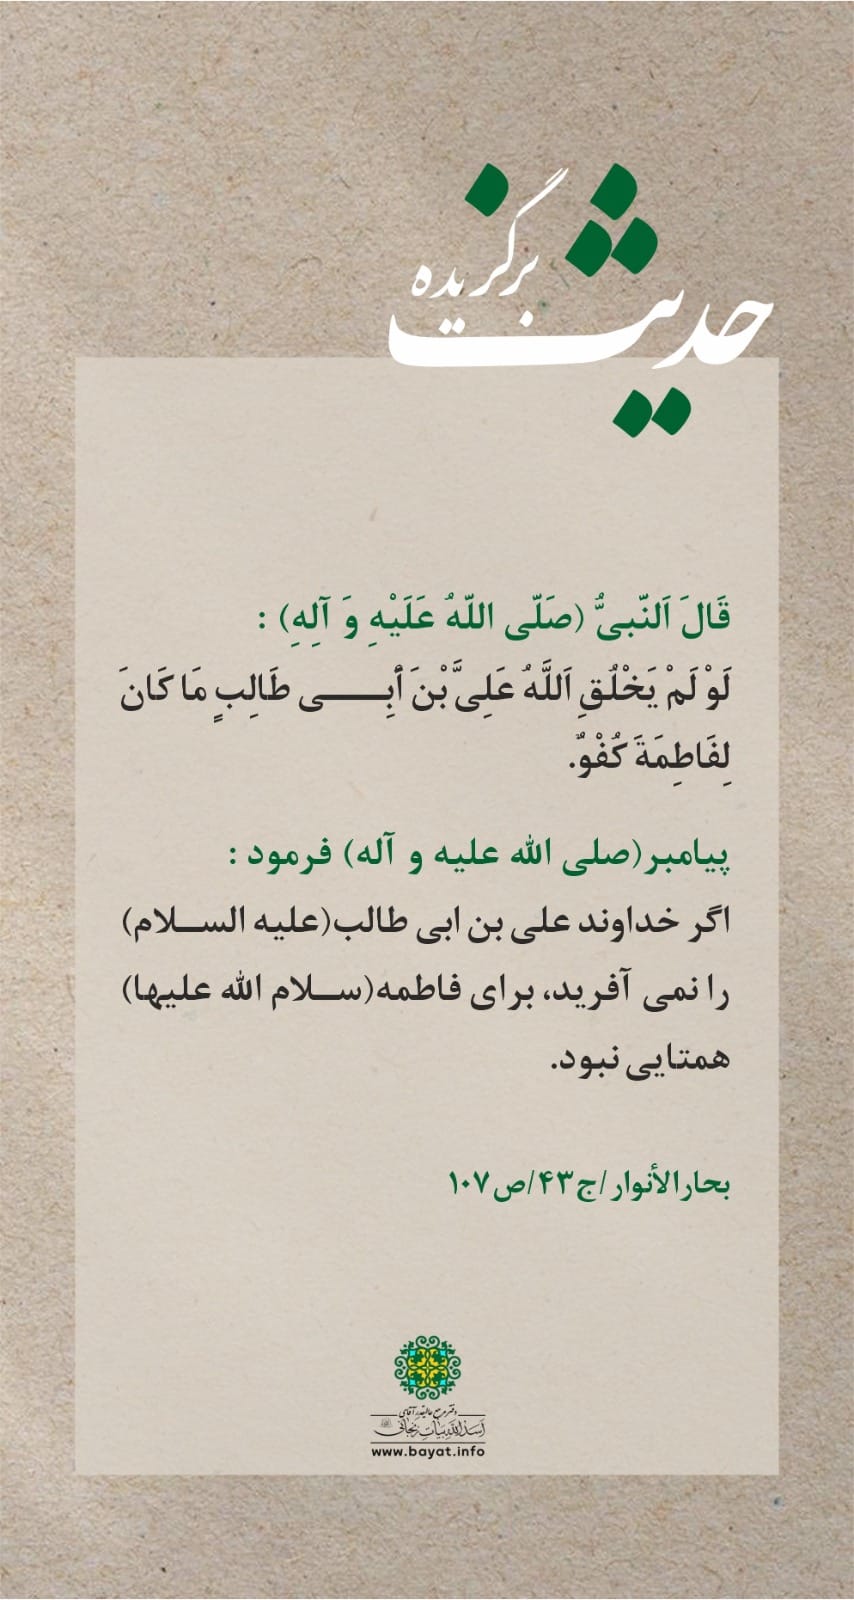 حدیث برگزیده
قَالَ اَلنّبیُّ (صَلّی اللّهُ عَلَیْهِ وَ آلِهِ) :
لَوْ لَمْ یَخْلُقِ اَللَّهُ عَلِیَّ بْنَ أَبِـــــی طَالِبٍ مَا کَانَ
لِفَاطِمَةَ کُفْوٌ.
پیامبر(صلی الله علیه و آله) فرمود :
اگر خداوند علی بن ابی طالب(علیه الســلام)
را نمی آفرید، برای فاطمه(ســلام الله علیها)
همتایی نبود.
بحارالأنوار/ج۴۳/ص۱۰۷
دفتر مرجع عالیقدر آقای
اسدالله بیات زنجانی
www.bayat.info